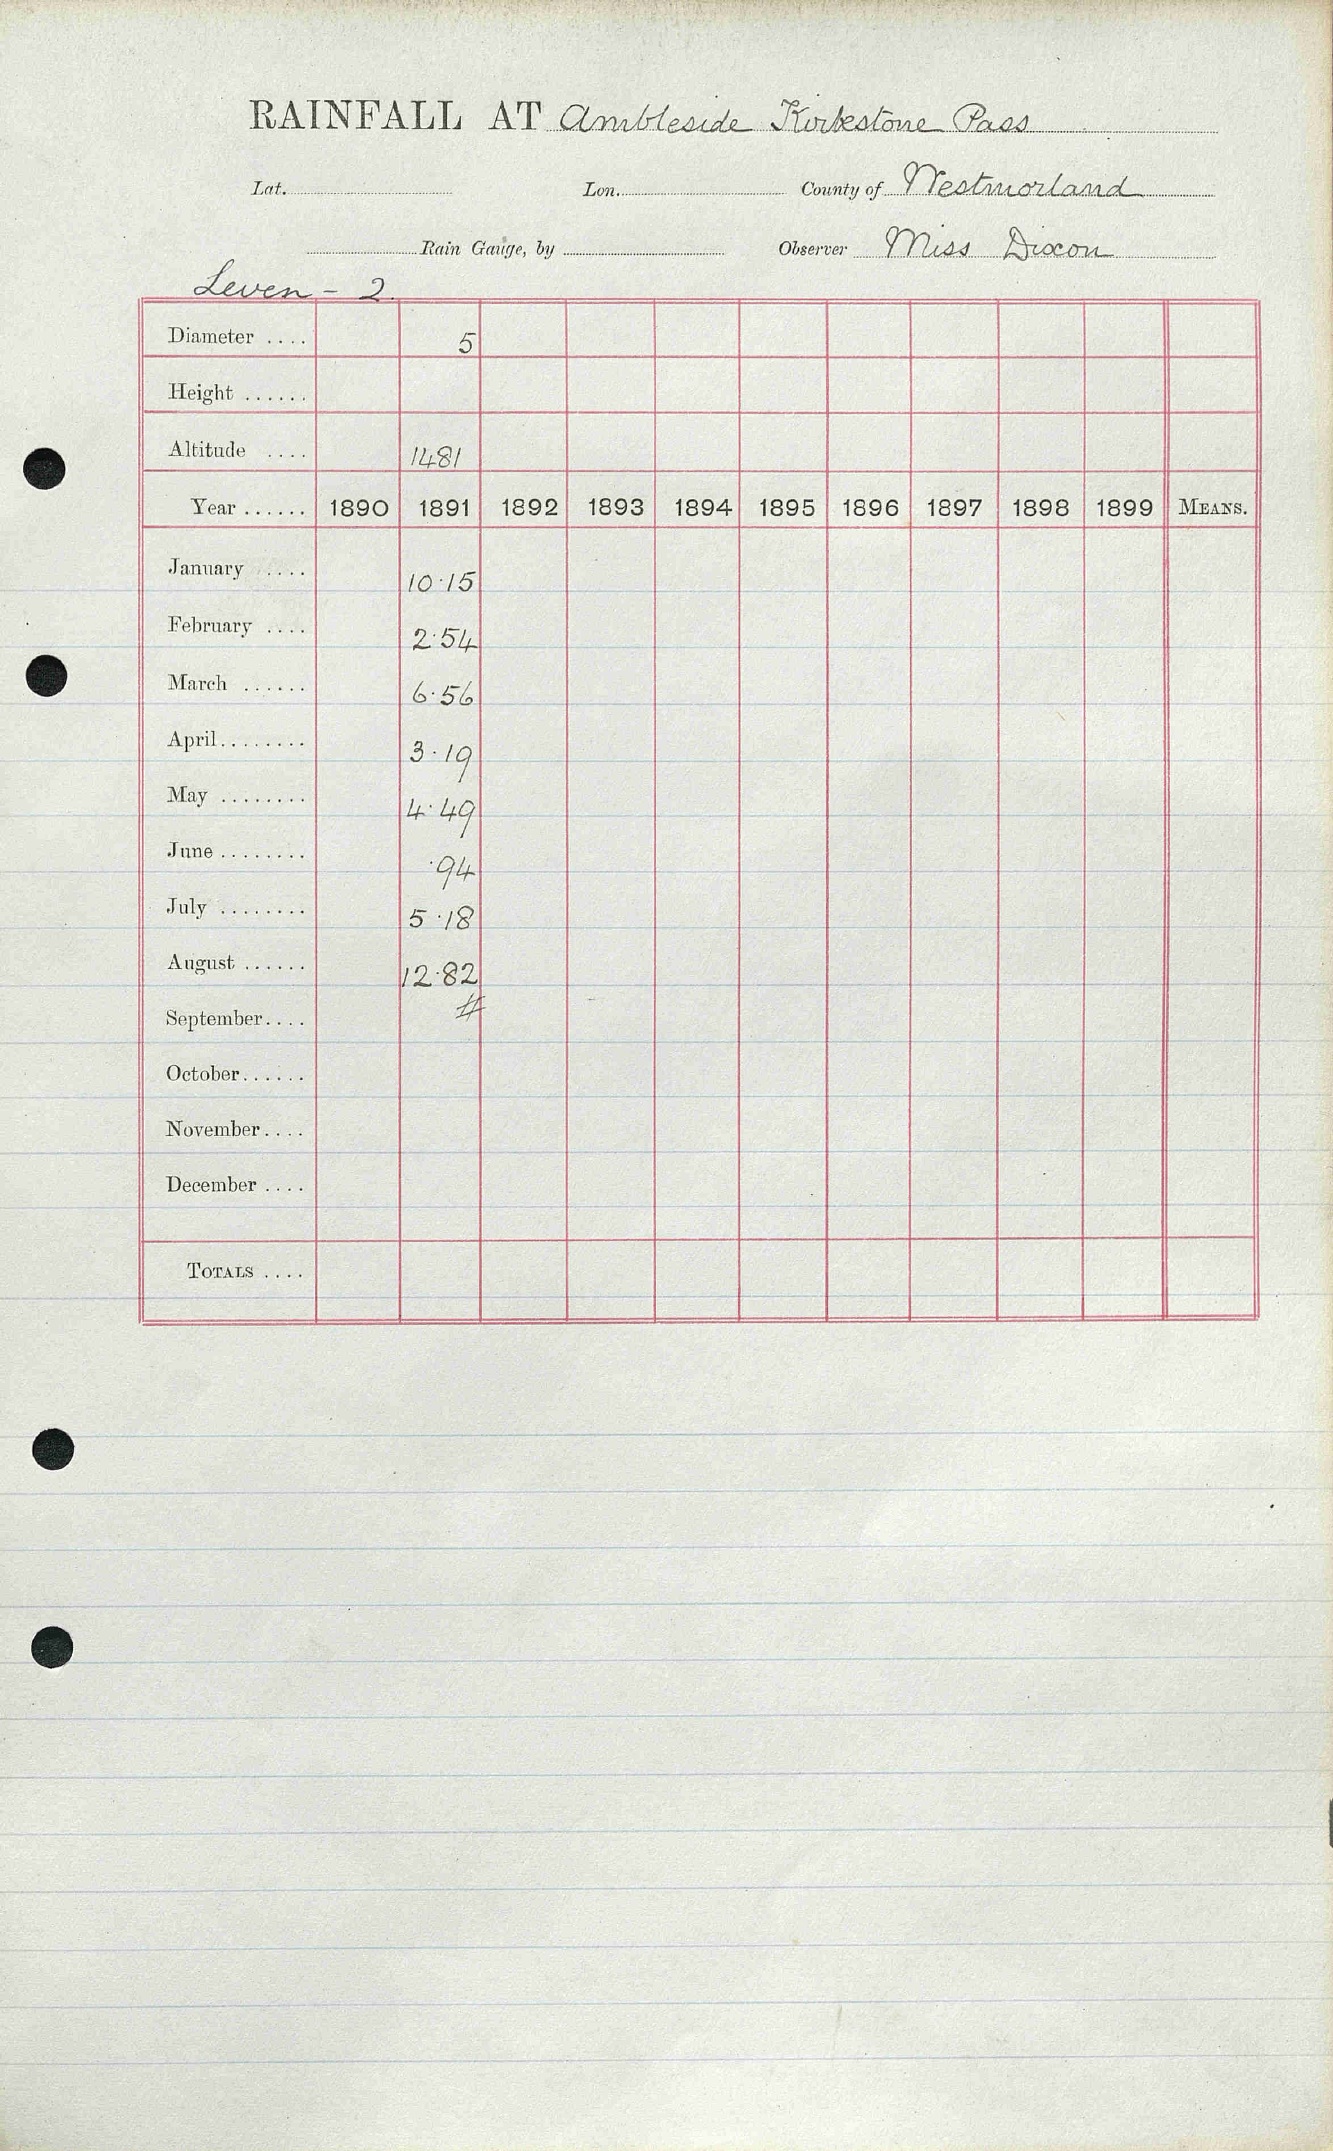 RAINFALL AT Ambleside Kirkstone Pass
Lat. Lon. County of Westmorland
Rain Gauge, by Observer Miss Dixon
Leven - 2.
Diameter .... 5
Height ......
Altitude .... 1481
Year ...... 1890 1891 1892 1893 1894 1895 1896 1897 1898 1899 MEANS.
January .... 10·15
February .... 2·54
March ...... 6·56
April........ 3·19
May ........ 4·49
June ........ ·94
July ........ 5·18
August ...... 12·82
#
September....
October......
November....
December ....
TOTALS ....